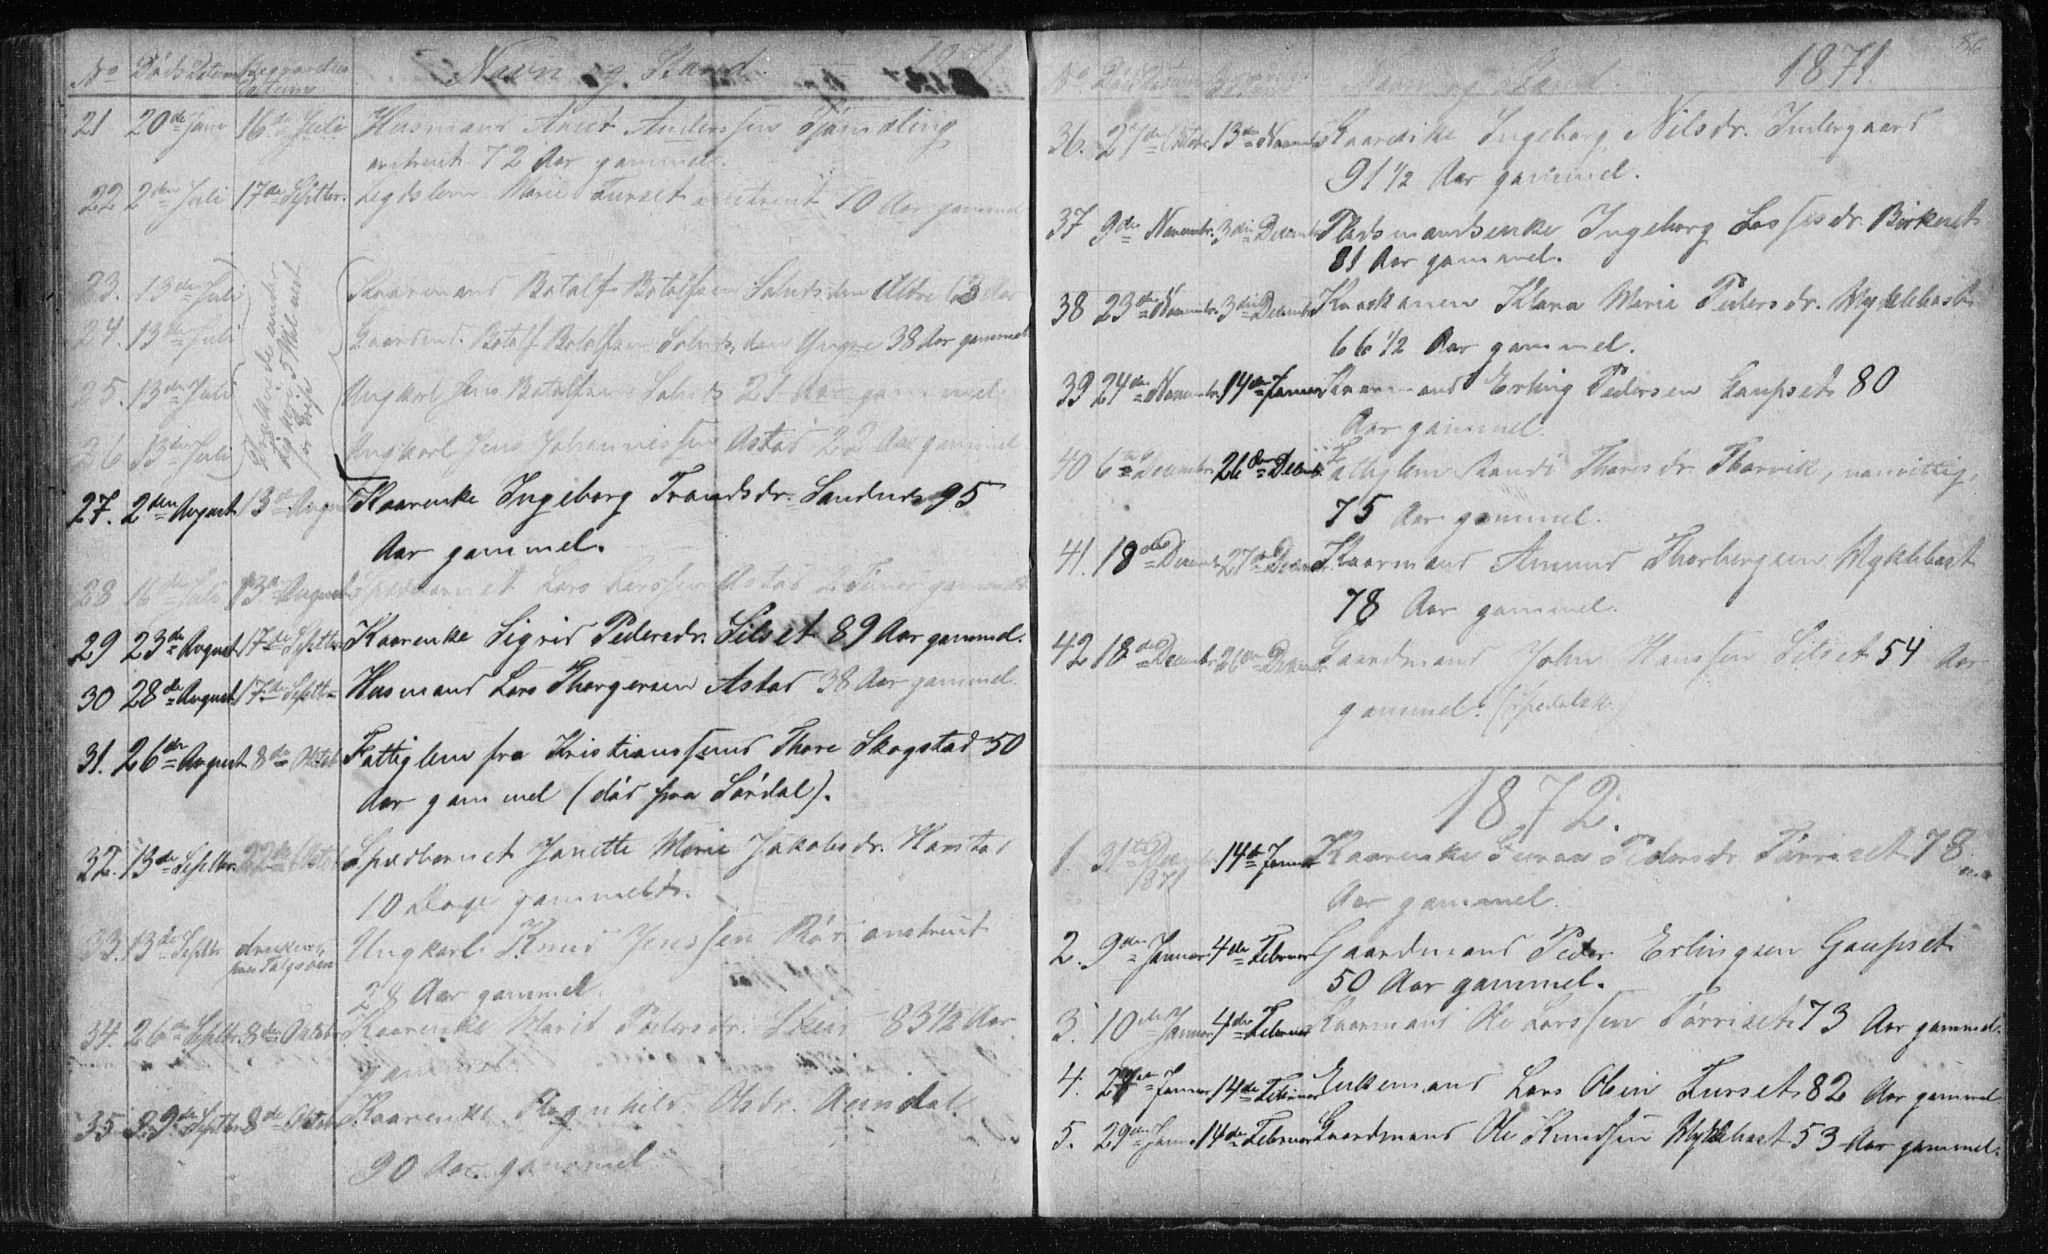 No Døds Datum Begravelses Datum Navn og Stand. 1871
21 20de Juni 16de Juli Husmand Anders Anderssen
omtrent 72 Aar gammel.
22 2den Juli 17de Septbr. Legdslem Marie Furset omtrent 70 Aar gammel
23. 13de Juli Kaarmand Botolf Botolfsen Solnds den Ældre 63 Aar
24. 13de Juli Gaardmd. Botolf Botolfsen Solnds, den Yngre 38 Aar gammel
25. 13de Juli Ungkarl Jens Botolfsen Solnds 21 Aar gammel
26 13de Juli Ungkarl Jens Johannessen Astad 22 Aar gammel
27. 2den August 13de August Kaarenke Ingeborg Trondsdr. Sandnds 95
Aar gammel.
28 16de Juli 13de August Spædbarnet Lars Larssen Astad 2 Timer gammelt
29 23de August 17de Septbr. Kaarenke Sigrid Pedersdr. Silset 89 Aar gammel.
30 28de August 17de Septbr. Husmand Lars Thorgersen Astad 38 Aar gammel.
31. 26de August 8de Oktob. Fattiglem fra Kristianssund Thore Skogstad 50
Aar gammel (død paa Sørdal).
32. 13de Septbr. 22de Oktob. Spædbarnet Janette Marie Jakobsdr. Harstad
10 Dage gammelt.
33. 13de Septbr. druknet Ungkarl Knud Jenssen Rød omtrent
28 Aar gammel
34. 26de Septbr. 8de Oktober Kaarenke Marit Pedersdr. 83½ Aar
gammel
35 29de Septbr. 8de Oktob. Kaarenke Ragnhild Olsdr.
90 Aar gammel
86
No Navn og Stand. 1871
36. 27de Oktbr. 13de Novembr. Kaarenke Ingeborg Nilsdr. Indergaard
91 ½ Aar gammel.
37 9de Novembr. 3die Decembr. Pladsmandsenke Ingeborg Lassesdr. Birkeset
81 Aar gammel.
38 23de Novembr. 3die Decembr. Kaarkonen Klara Marie Pedersdr. Myklebost
66 ½ Aar gammel.
39 24de Novembr. 14de Januar Kaarmand Erling Pedersen Gaupset 80
Aar gammel.
40 6te Decembr. 26de Decembr. Fattiglem Randi Thoresdr. Thorvik, vanvittig,
75 Aar gammel.
41. 18de Decembr. 27de Decembr. Kaarmand Amund Thorbergsen Myklebost
78 Aar gammel.
42 18de Decembr. 26de Decembr. Gaardmand John Hanssen Silset 54 Aar
gammel. (spedalsk.)
1872.
1. 31te Decbr. 1871 14de Januar Kaarenke Guron Pedersdr. Tørriset 78
Aar gammel.
2. 9de Januar 4de Februar Gaardmand Peder Erlingsen Gaupset
50 Aar gammel.
3. 10de Januar 4de Februar Kaarmand Ole Larssen Tørriset 73 Aar gammel.
4. 27de Januar 14de Februar Enkemand Lars Olsen Furset 82 Aar gammel.
5. 29de Januar 14de Februar Gaardmand Ole Knudsen Myklebost 53 Aar gammel.